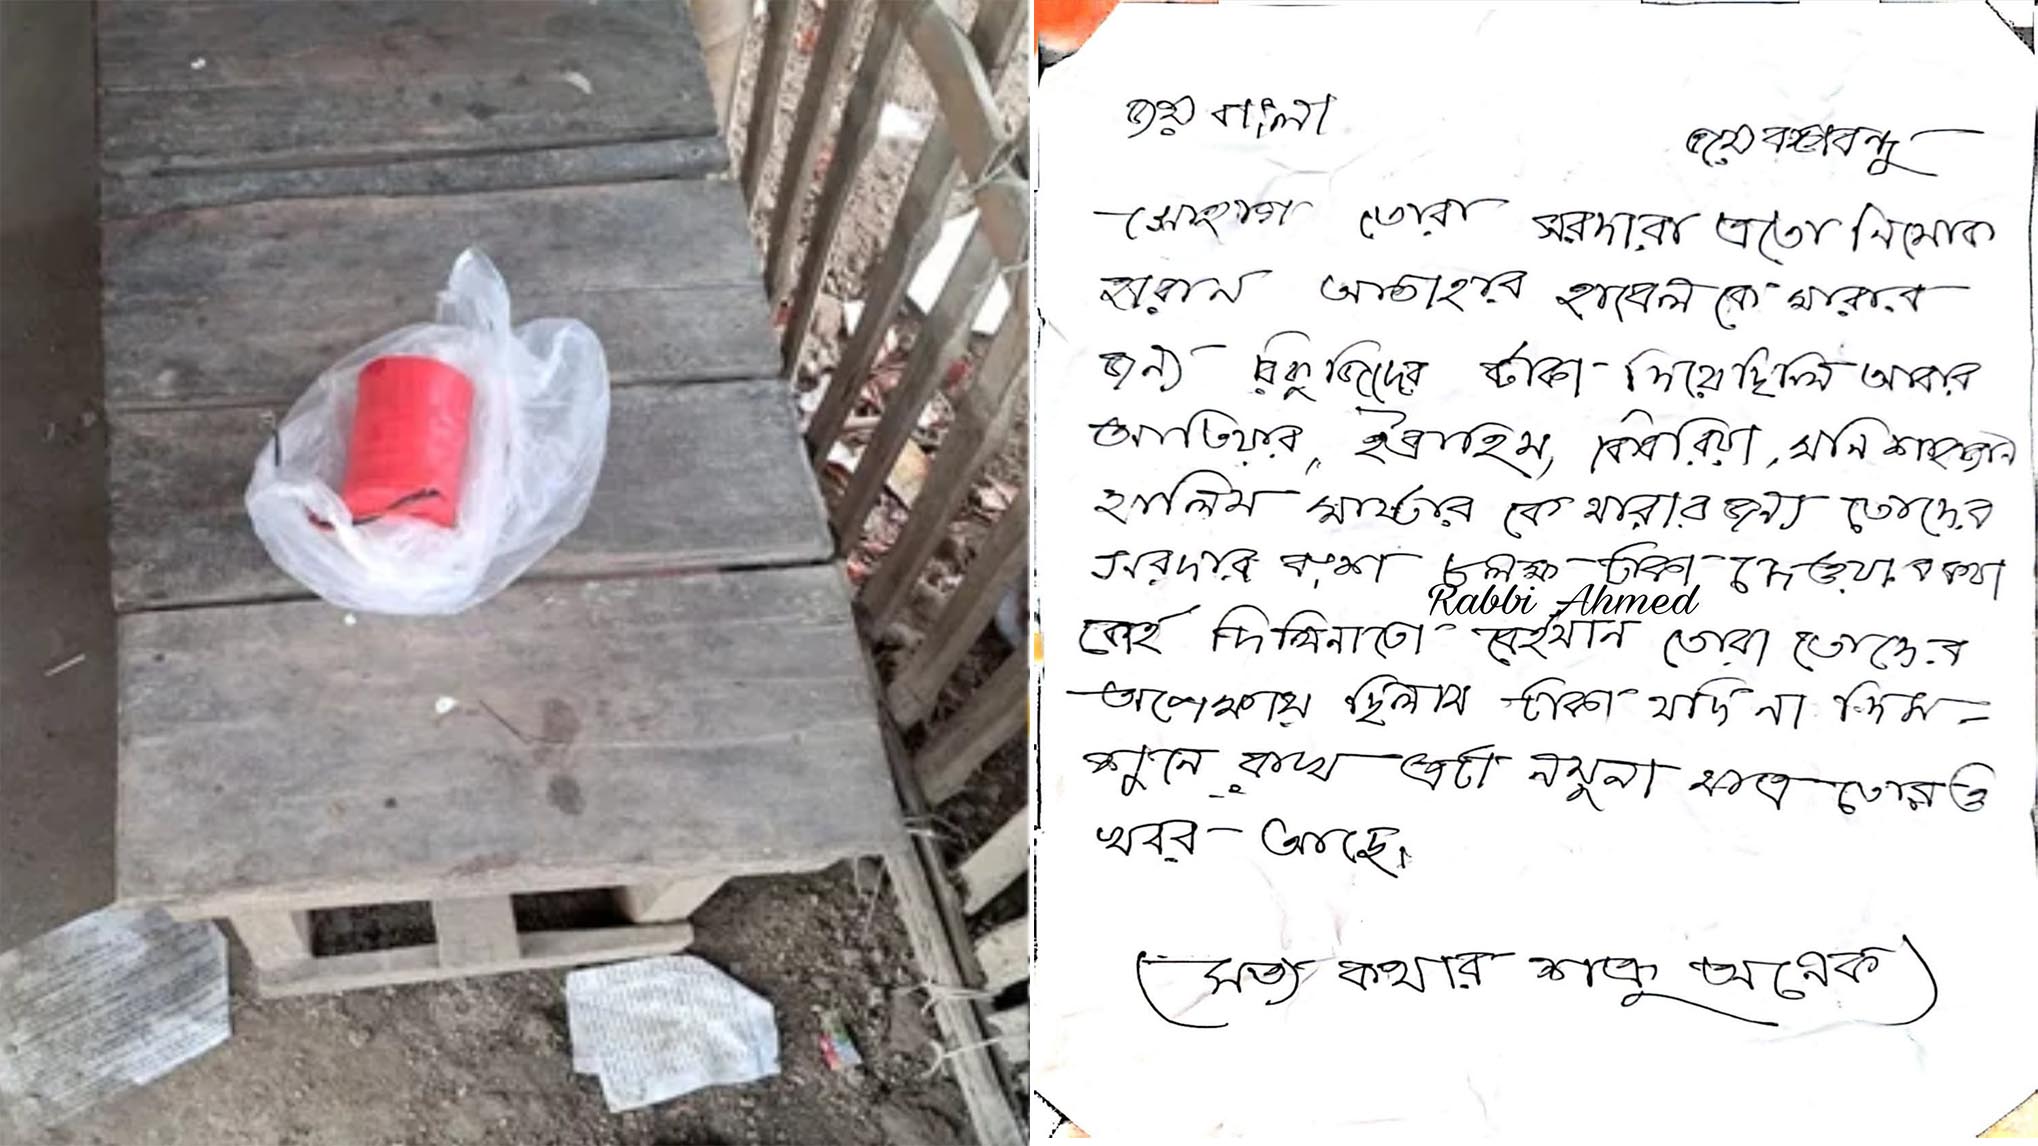 জয় বাংলা
জয় বঙ্গবন্ধু
সোহাগ তোরা সরদারা এতো নিমোক
হারাম আতাহার হাবেল কে মারার
জন্য টাকা দিয়েছিলি আবার
আতিয়ার, ইব্রাহিম, মনি শাহজান
হালিম মাস্টার কে মারার জন্য তোদের
সরদার বংশ লক্ষ টাকা দেওয়ার কথা
Rabbi Ahmed
কই দিলিনাতো বেইমান তোরা তোদের
অপেক্ষায় ছিলাম টাকা যদি না দিস
শুনে রাখ এটা নমুনা মাত্র তোরও
খবর আছে।
(সত্য কথার শত্রু অনেক)